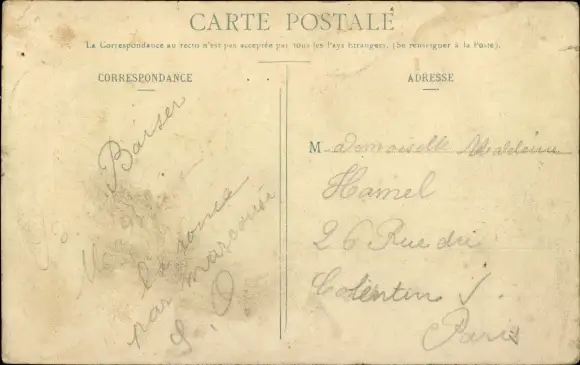 CARTE POSTALE
La Correspondance au recto n'est pas acceptée par tous les Pays Etrangers. (Se renseigner à la Poste).
CORRESPONDANCE
Baiser
la ronce
par marcoussis
S. O
ADRESSE
Mademoiselle Madeleine
Hamel
26 Rue du
Cotentin
Paris